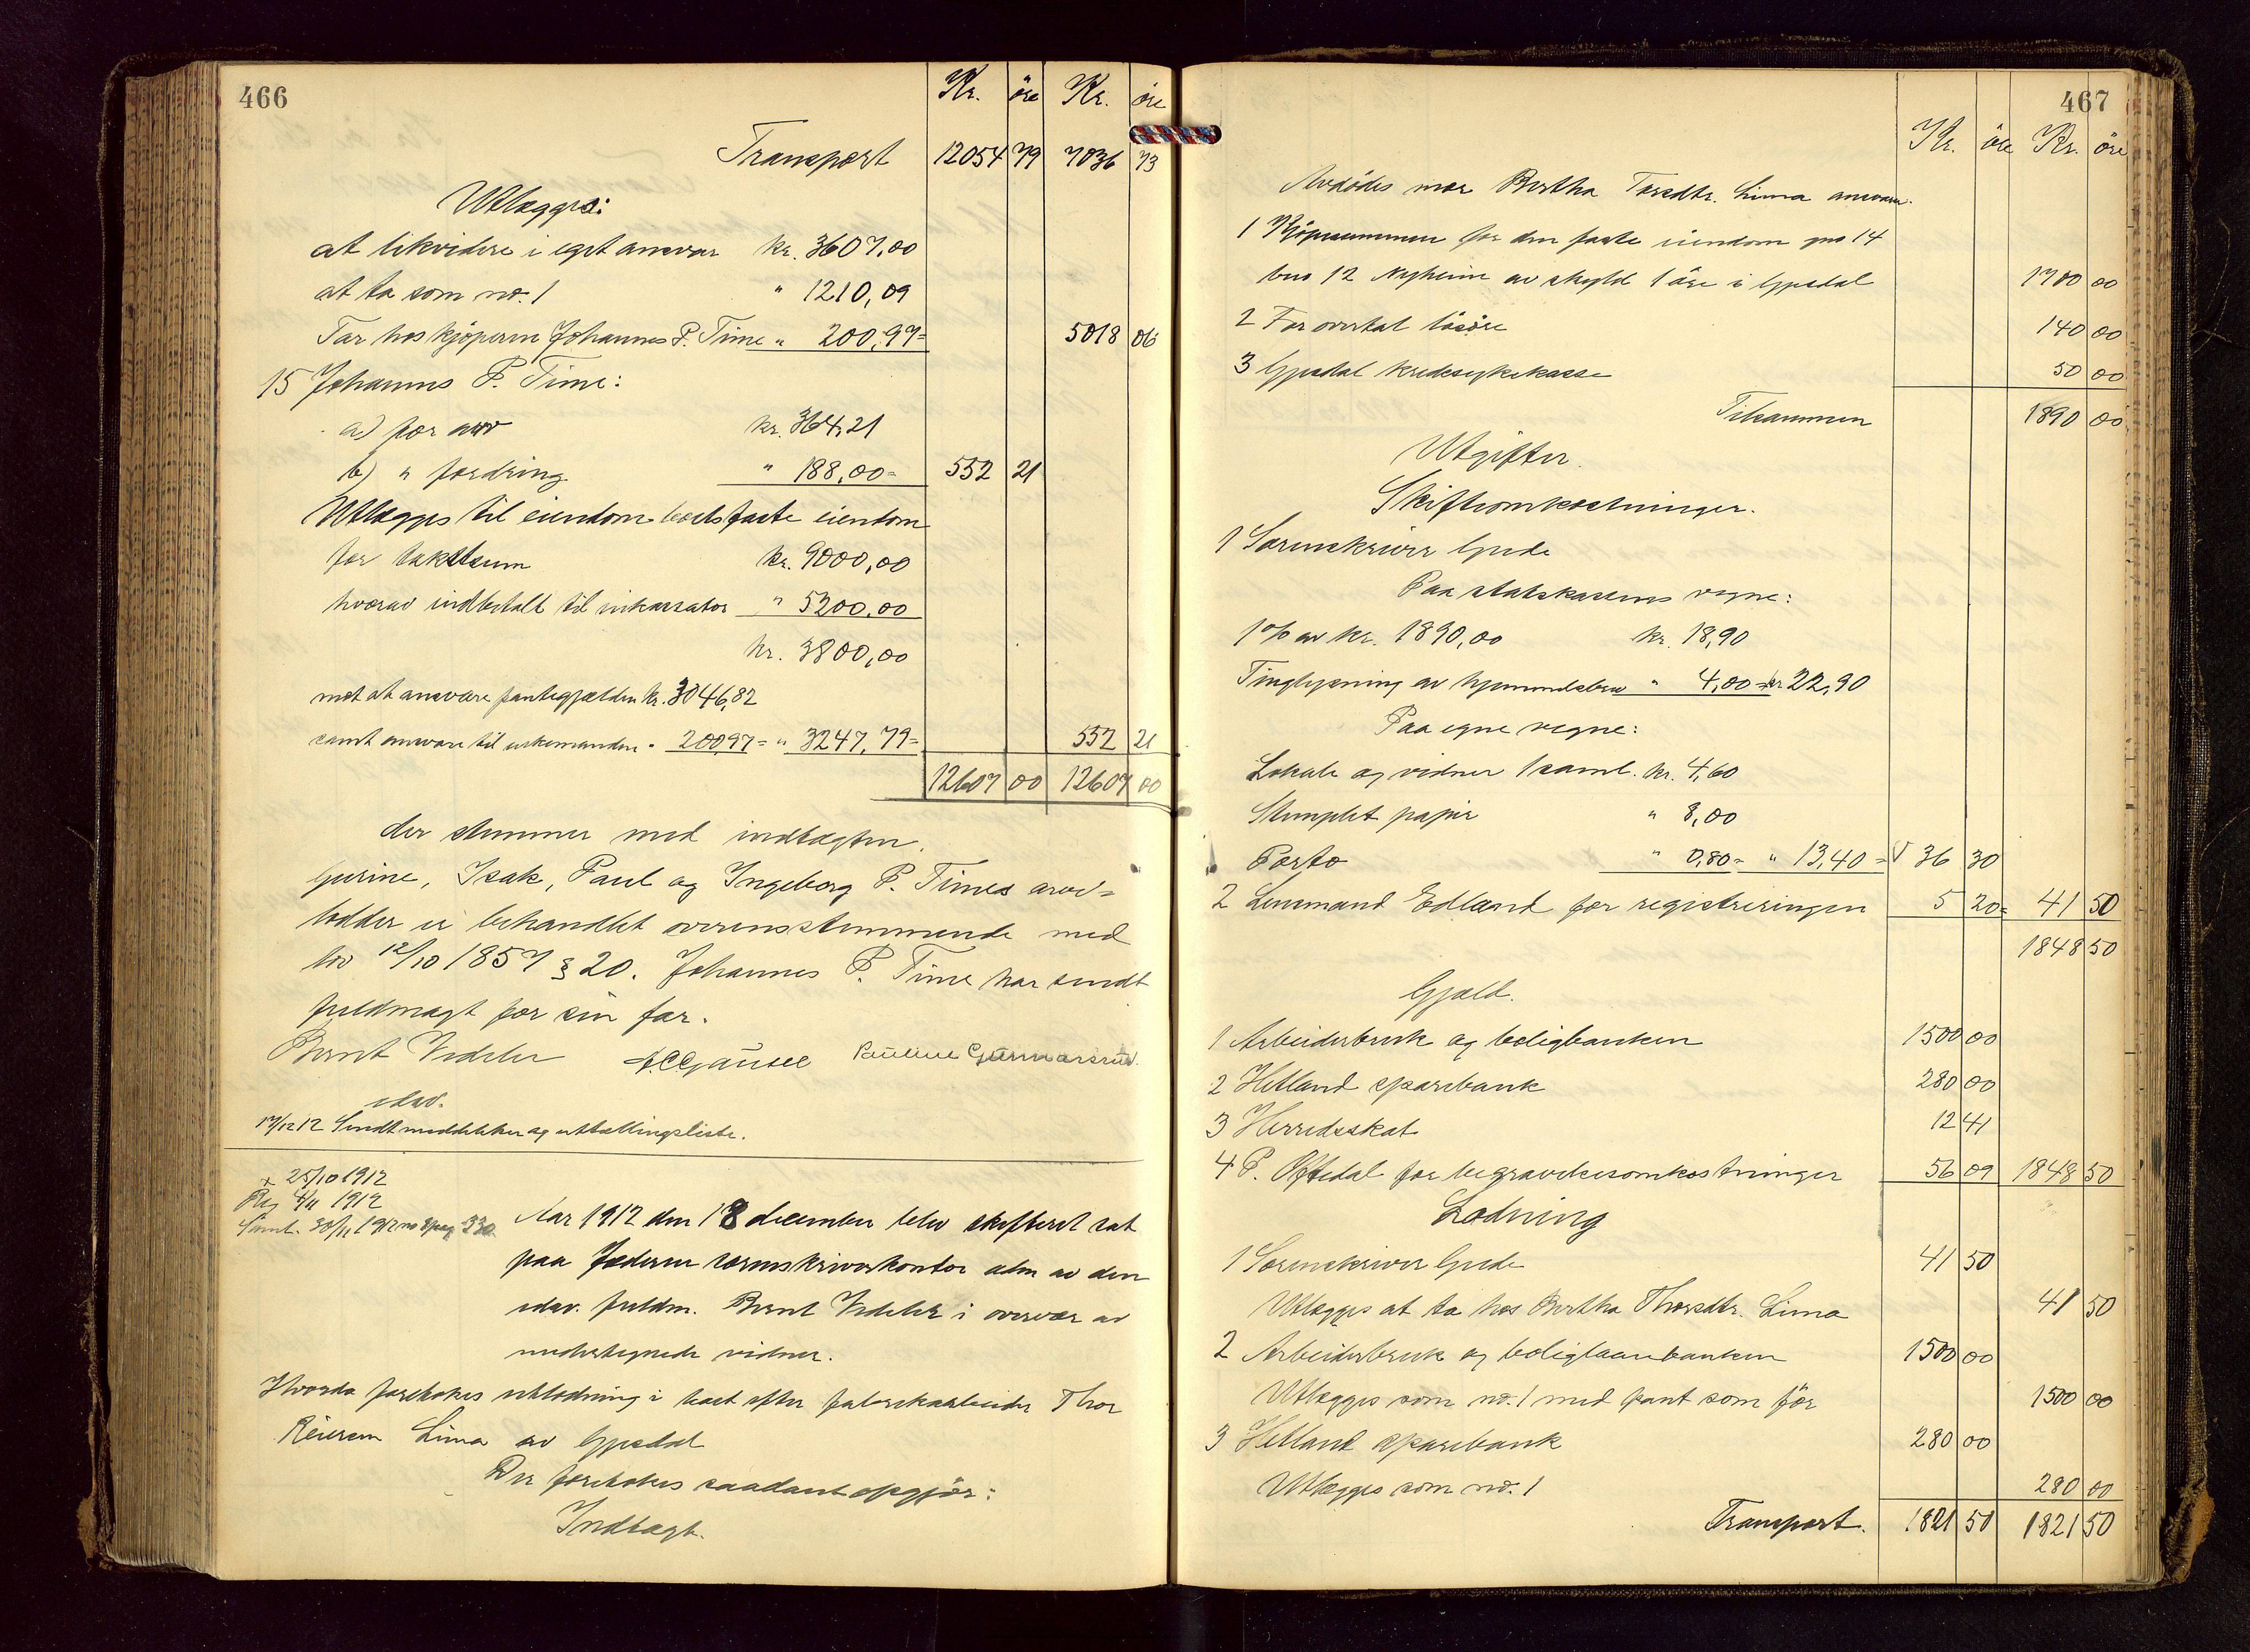 466
Kr. | öre | Kr. | öre
Transport 12054 79 7036 73
Utlægges:
at likvidere i eget ansvar kr. 3607,00
at ta som no. 1 " 1210,09
Tar hos kjöperen Johannes P. Time " 200,97= 5018 06
15 Johannes P. Time:
a) for arv kr. 364,21
b) " fordring " 188,00= 552 21
Utlægges til eiendom boets faste eiendom
for takstsum kr. 9000,00
hvorav indbetalt til inkassator " 5200,00
kr. 3800,00
mot at ansvare pantegjælden kr. 3046,82
samt ansvare til enkemanden " 200,97= " 3247,79= 552 21
12607 00 12607 00
der stemmer med indtægten.
Gurine, Isak, Paul og Ingeborg P. Times arve=
lodder er behandlet overensstemmende med
lov 12/10 1857 § 20. Johannes P. Time har sendt
fuldmagt for sin far.
Bernt Vedeler A.C.Gausel Pauline Gunnarsrud.
edsv.
17/12 12 Sendt meddelelser og uttællingsliste.
+ 25/10 1912
Reg 4/11 1912
Saml. 30/11 1912 no 8 pag 330.
Aar 1912 den 18 december blev skifteret sat
paa Jæderen sorenskriverkontor adm av den
edsv. fuldm. Bernt Vedeler i overvær av
undertegnede vidner.
Hvorda foretokes utlodning i boet efter fabrikarbeider Thor
Reiersen Lima av Gjesdal
Der foretokes saadant opgjör:
Indtægt.
467
Kr. | öre | Kr. | öre
Avdödes mor Bertha Torsdtr. Lima ansvarer.
1 Kjöpesummen for den faste eiendom gno 14
bno 12 Nyheim av skyld 1 öre i Gjesdal 1700 00
2 For overtat lösöre 140 00
3 Gjesdal kredssykekasse 50 00
Tilsammen 1890 00
Utgifter.
Skifteomkostninger.
1 Sorenskriver Gjede
Paa statskassens vegne:
1 % av kr. 1890,00 kr. 18,90
Tinglysning av hjemmelsbrev " 4,00= kr 22,90
Paa egne vegne:
Lokale og vidner 1 saml. kr. 4,60
Stemplet papir " 8,00
Porto " 0,80= " 13,40= 36 30
2 Lensmand Edland for registreringen 5 20= 41 50
1848 50
Gjæld.
1 Arbeiderbruk og boligbanken 1500 00
2 Hetland sparebank 280 00
3 Herredsskat 12 41
4 P. Oftedal for begravelsesomkostninger 56 09 1848 50
Lodning
1 Sorenskriver Gjede 41 50
Utlægges at ta hos Bertha Thorsdtr. Lima 41 50
2 Arbeiderbruk og boliglaanebanken 1500 00
Utlægges som no. 1 med pant som för 1500 00
3 Hetland sparebank 280 00
Utlægges som no. 1 280 00
Transport. 1821 50 1821 50